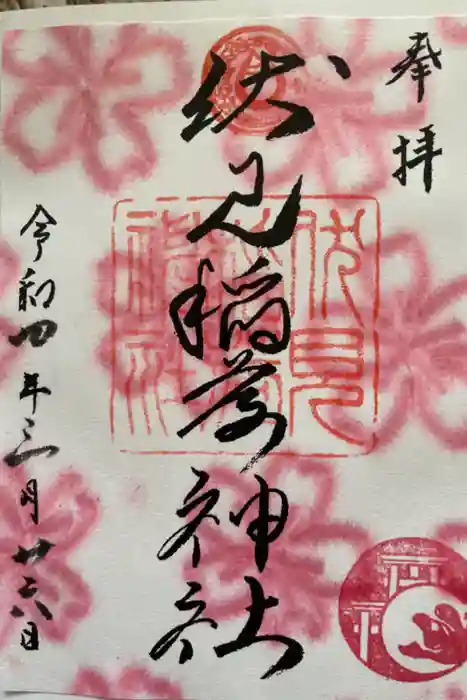 奉拝
伏見稲荷神社
令和四年三月廿六日
伏見稲荷神社